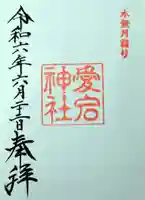 水無月詣り
愛宕
神社
奉拝
令和六年六月二十二日